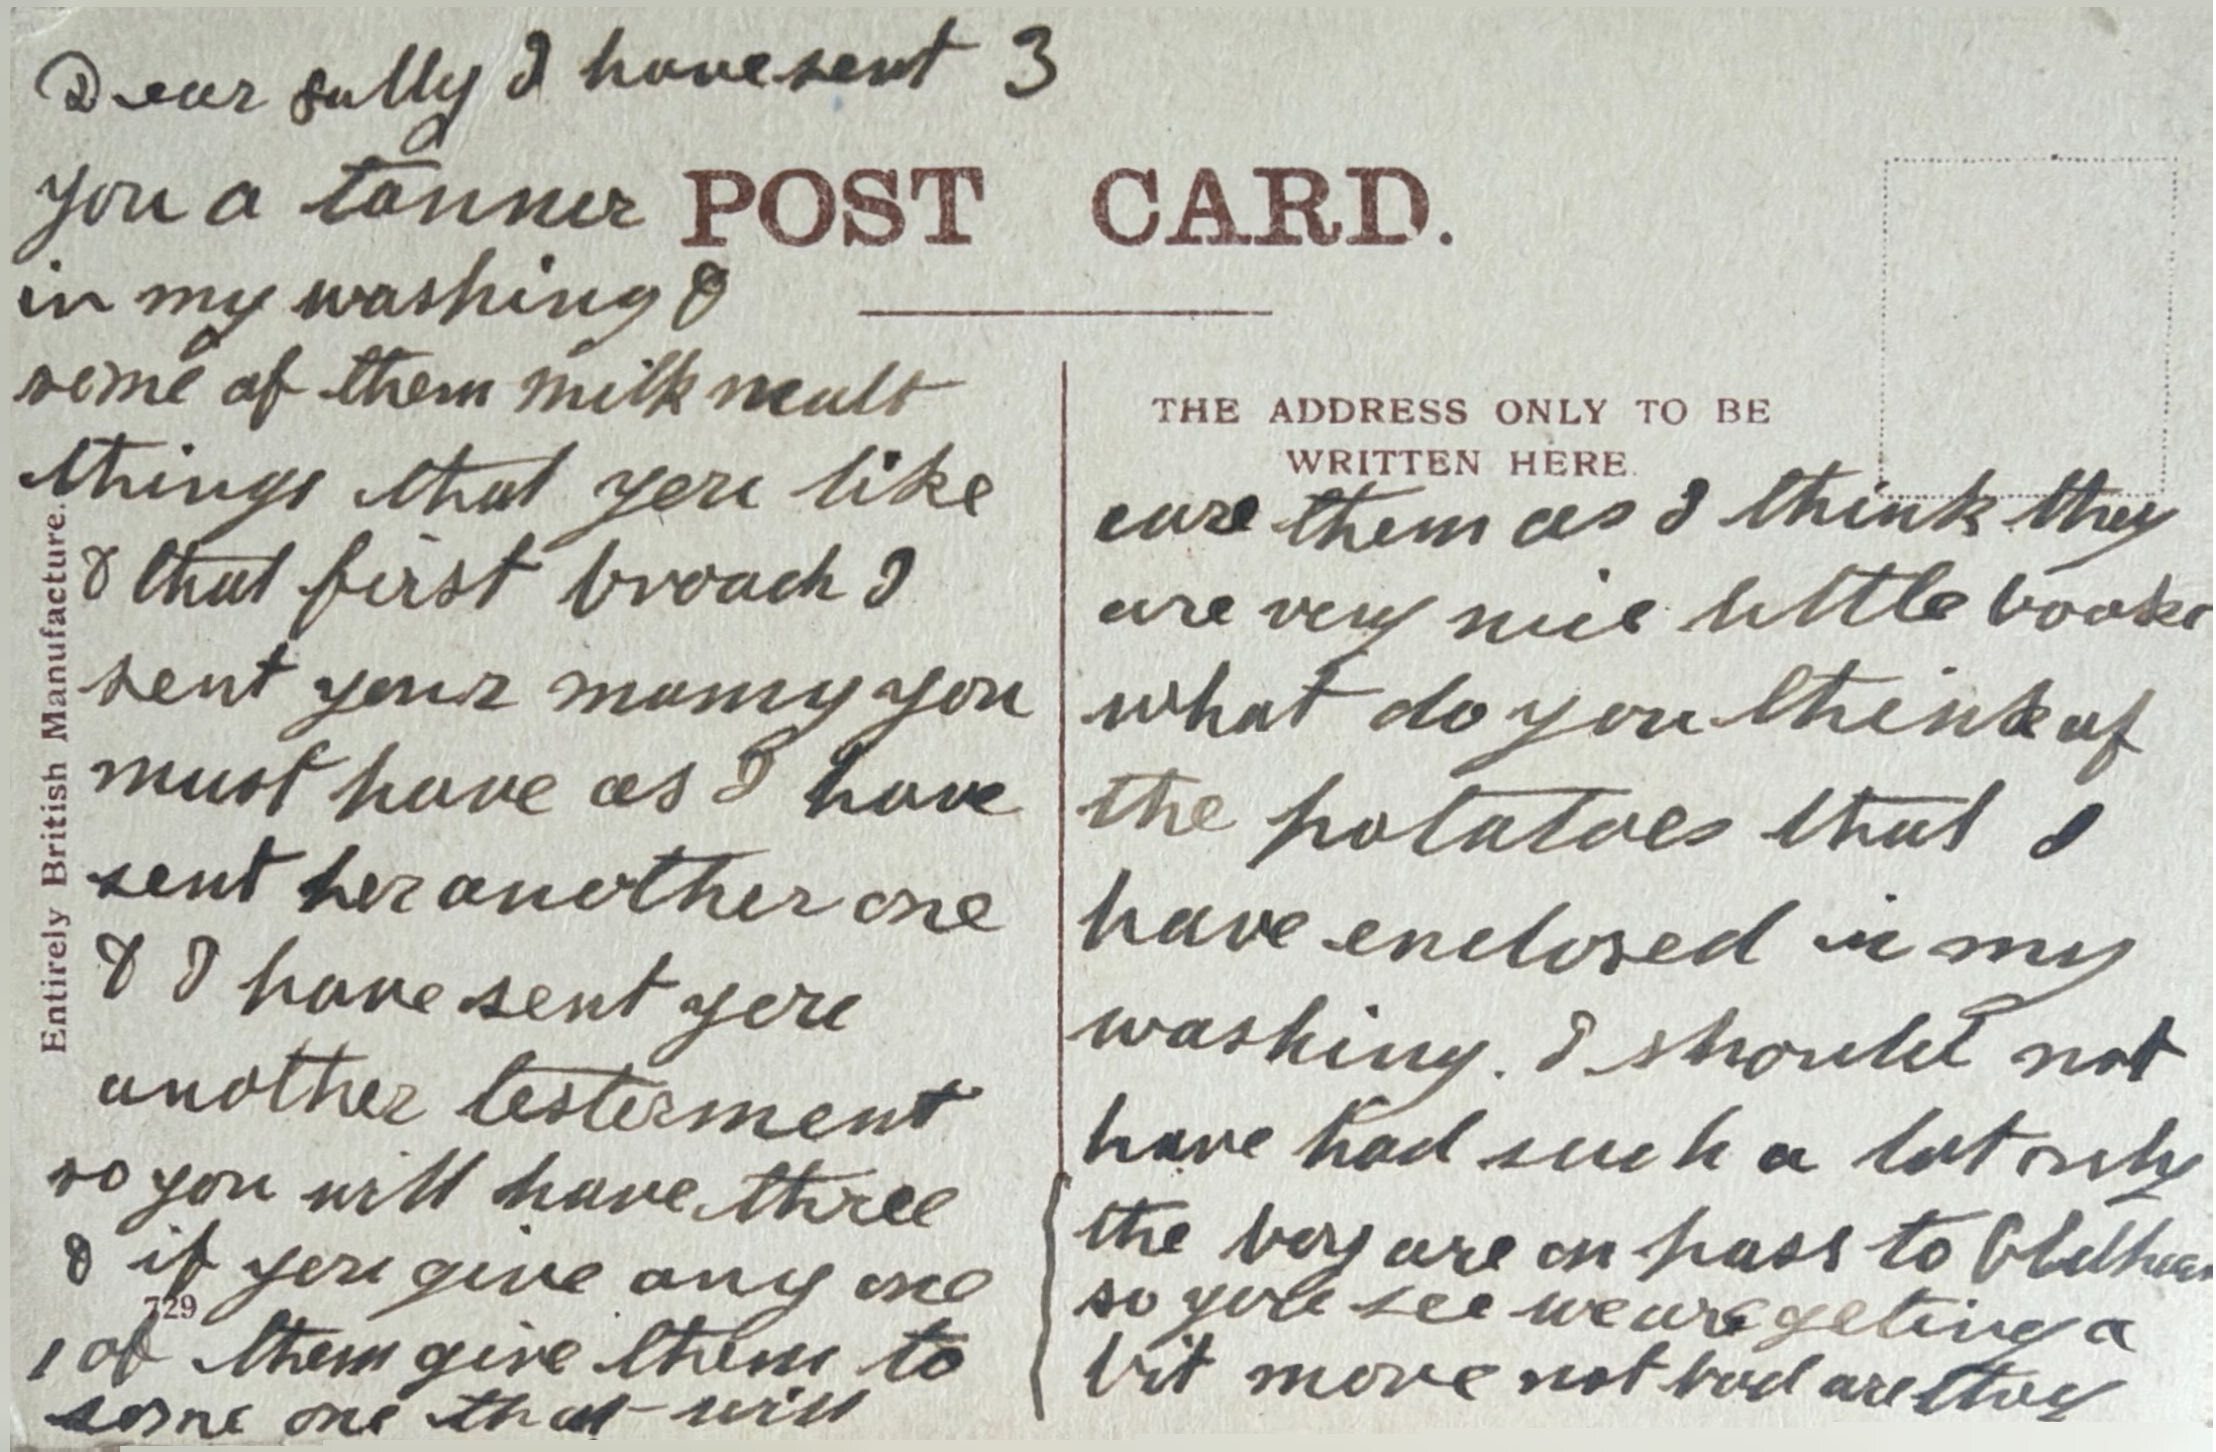 Dear sally I have sent 3
you a tanner
in my washing &
some of them milk malt
things that you like
& that first broach I
sent your mamy you
must have as I have
sent her another one
& I have sent you
another testerment
so you will have three
& if you give any one
1 of them give them to
some one that will
POST CARD.
THE ADDRESS ONLY TO BE
WRITTEN HERE.
care them as I think they
are very nice little books
what do you think of
the potatoes that I
have enclosed in my
washing. I should not
have had such a lot only
the boy are on pass to Oldham
so you see we are geting a
bit more not bad are they
Entirely British Manufacture.
729